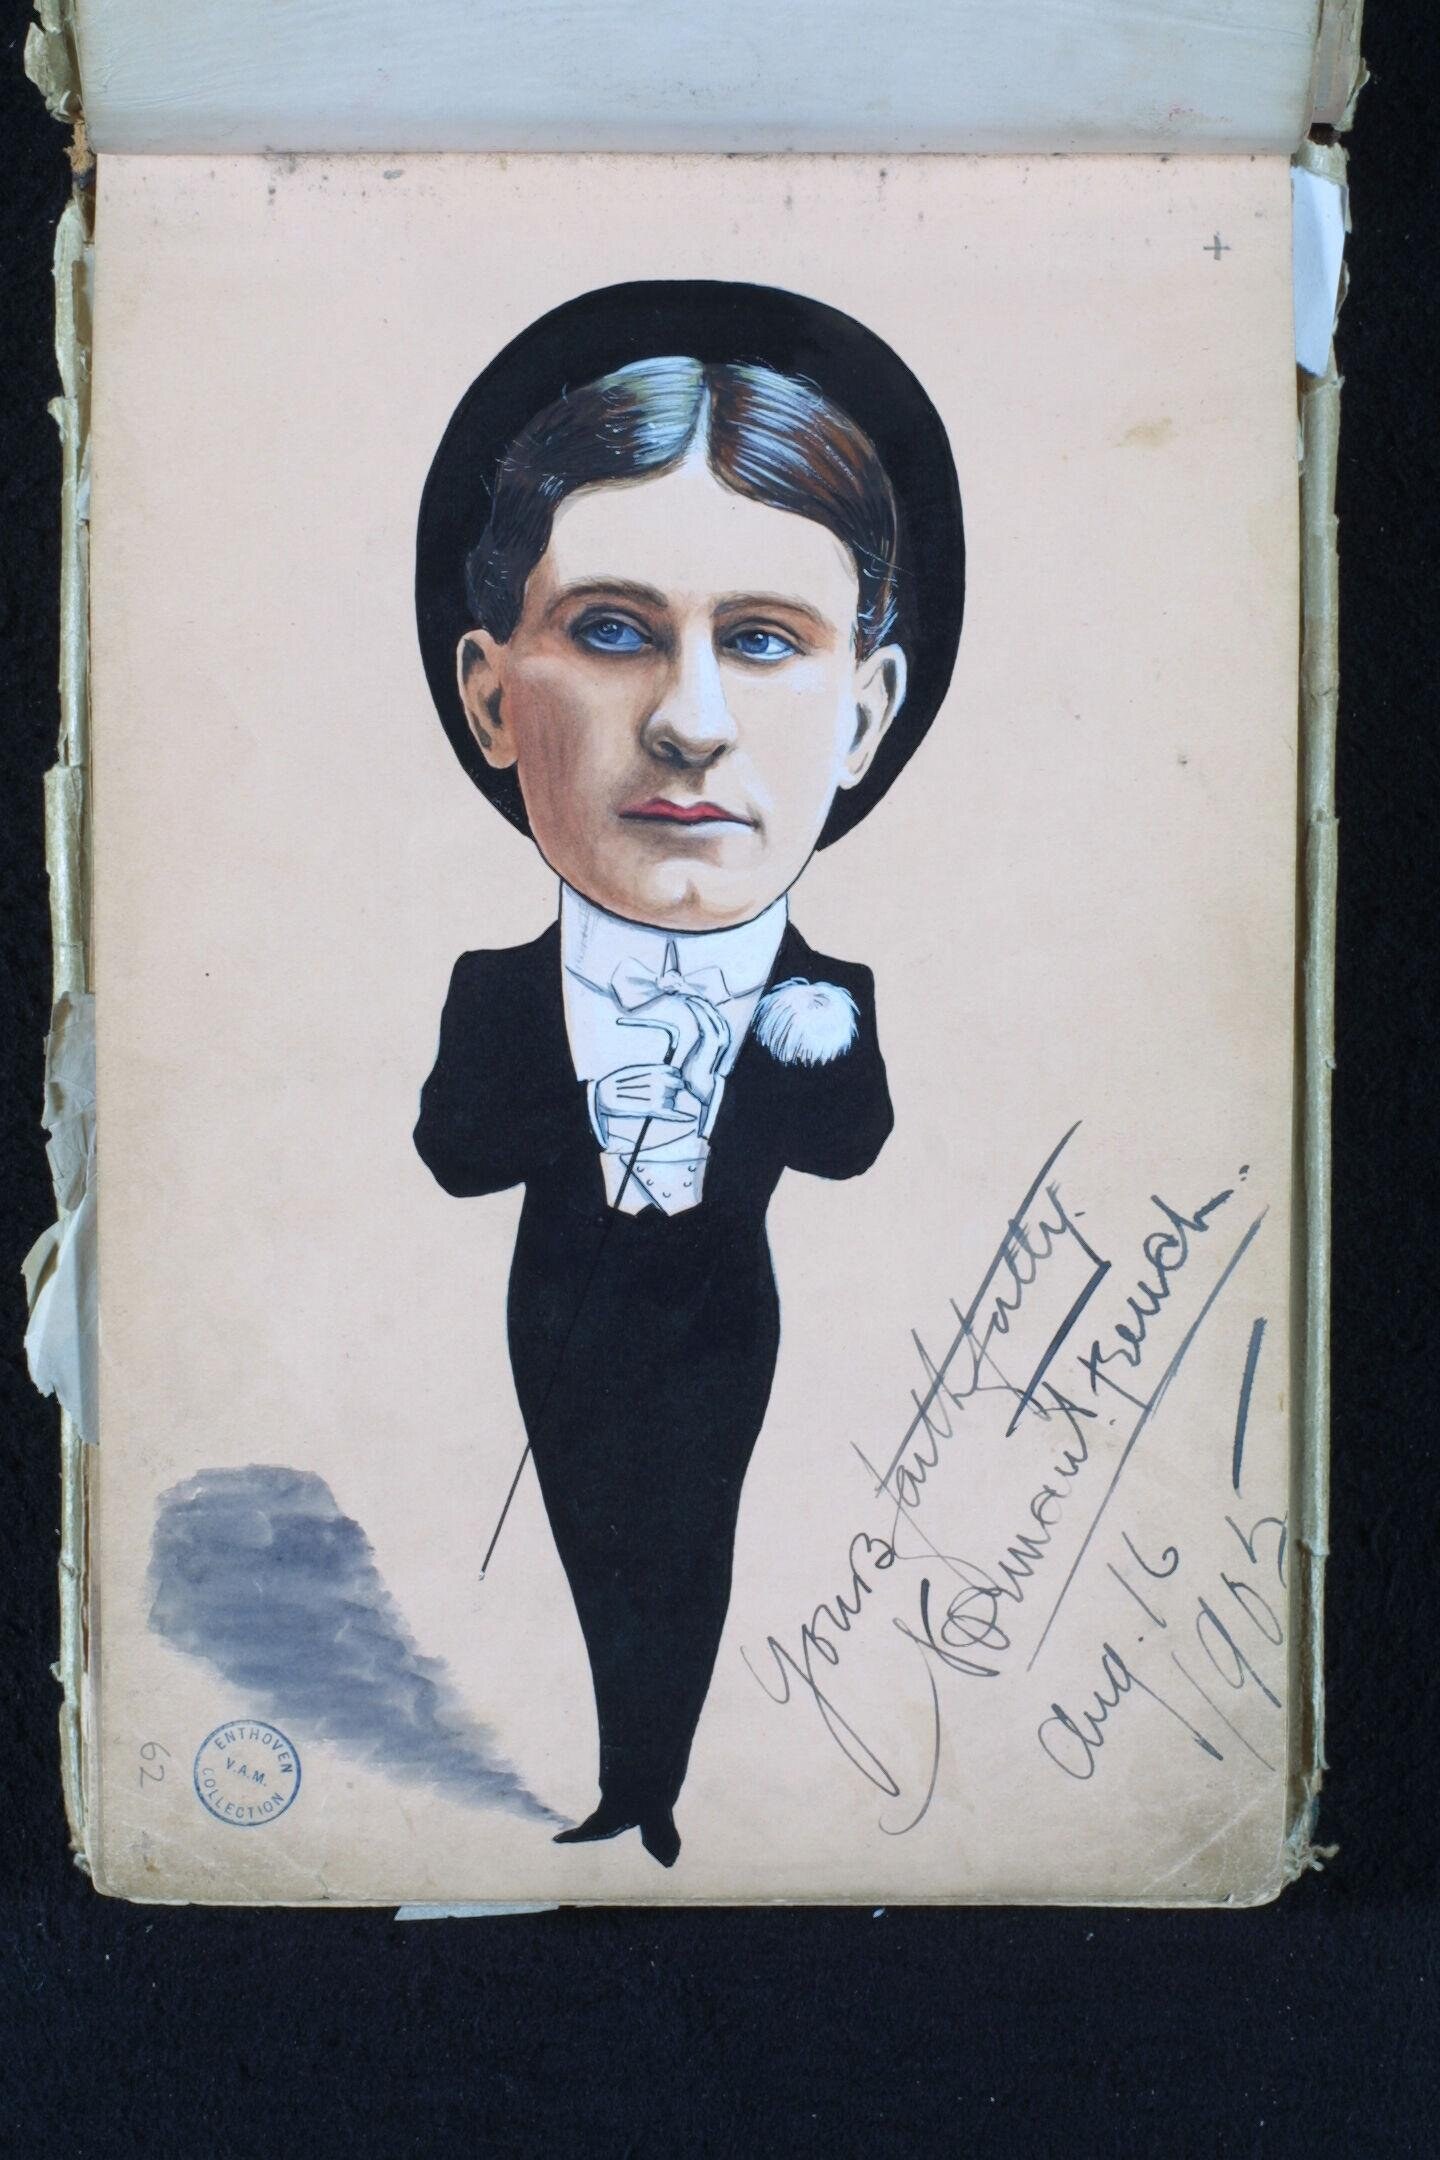 +
Yours faithfully.
Norman French.
Aug. 16
1905
62
ENTHOVEN
V.A.M.
COLLECTION